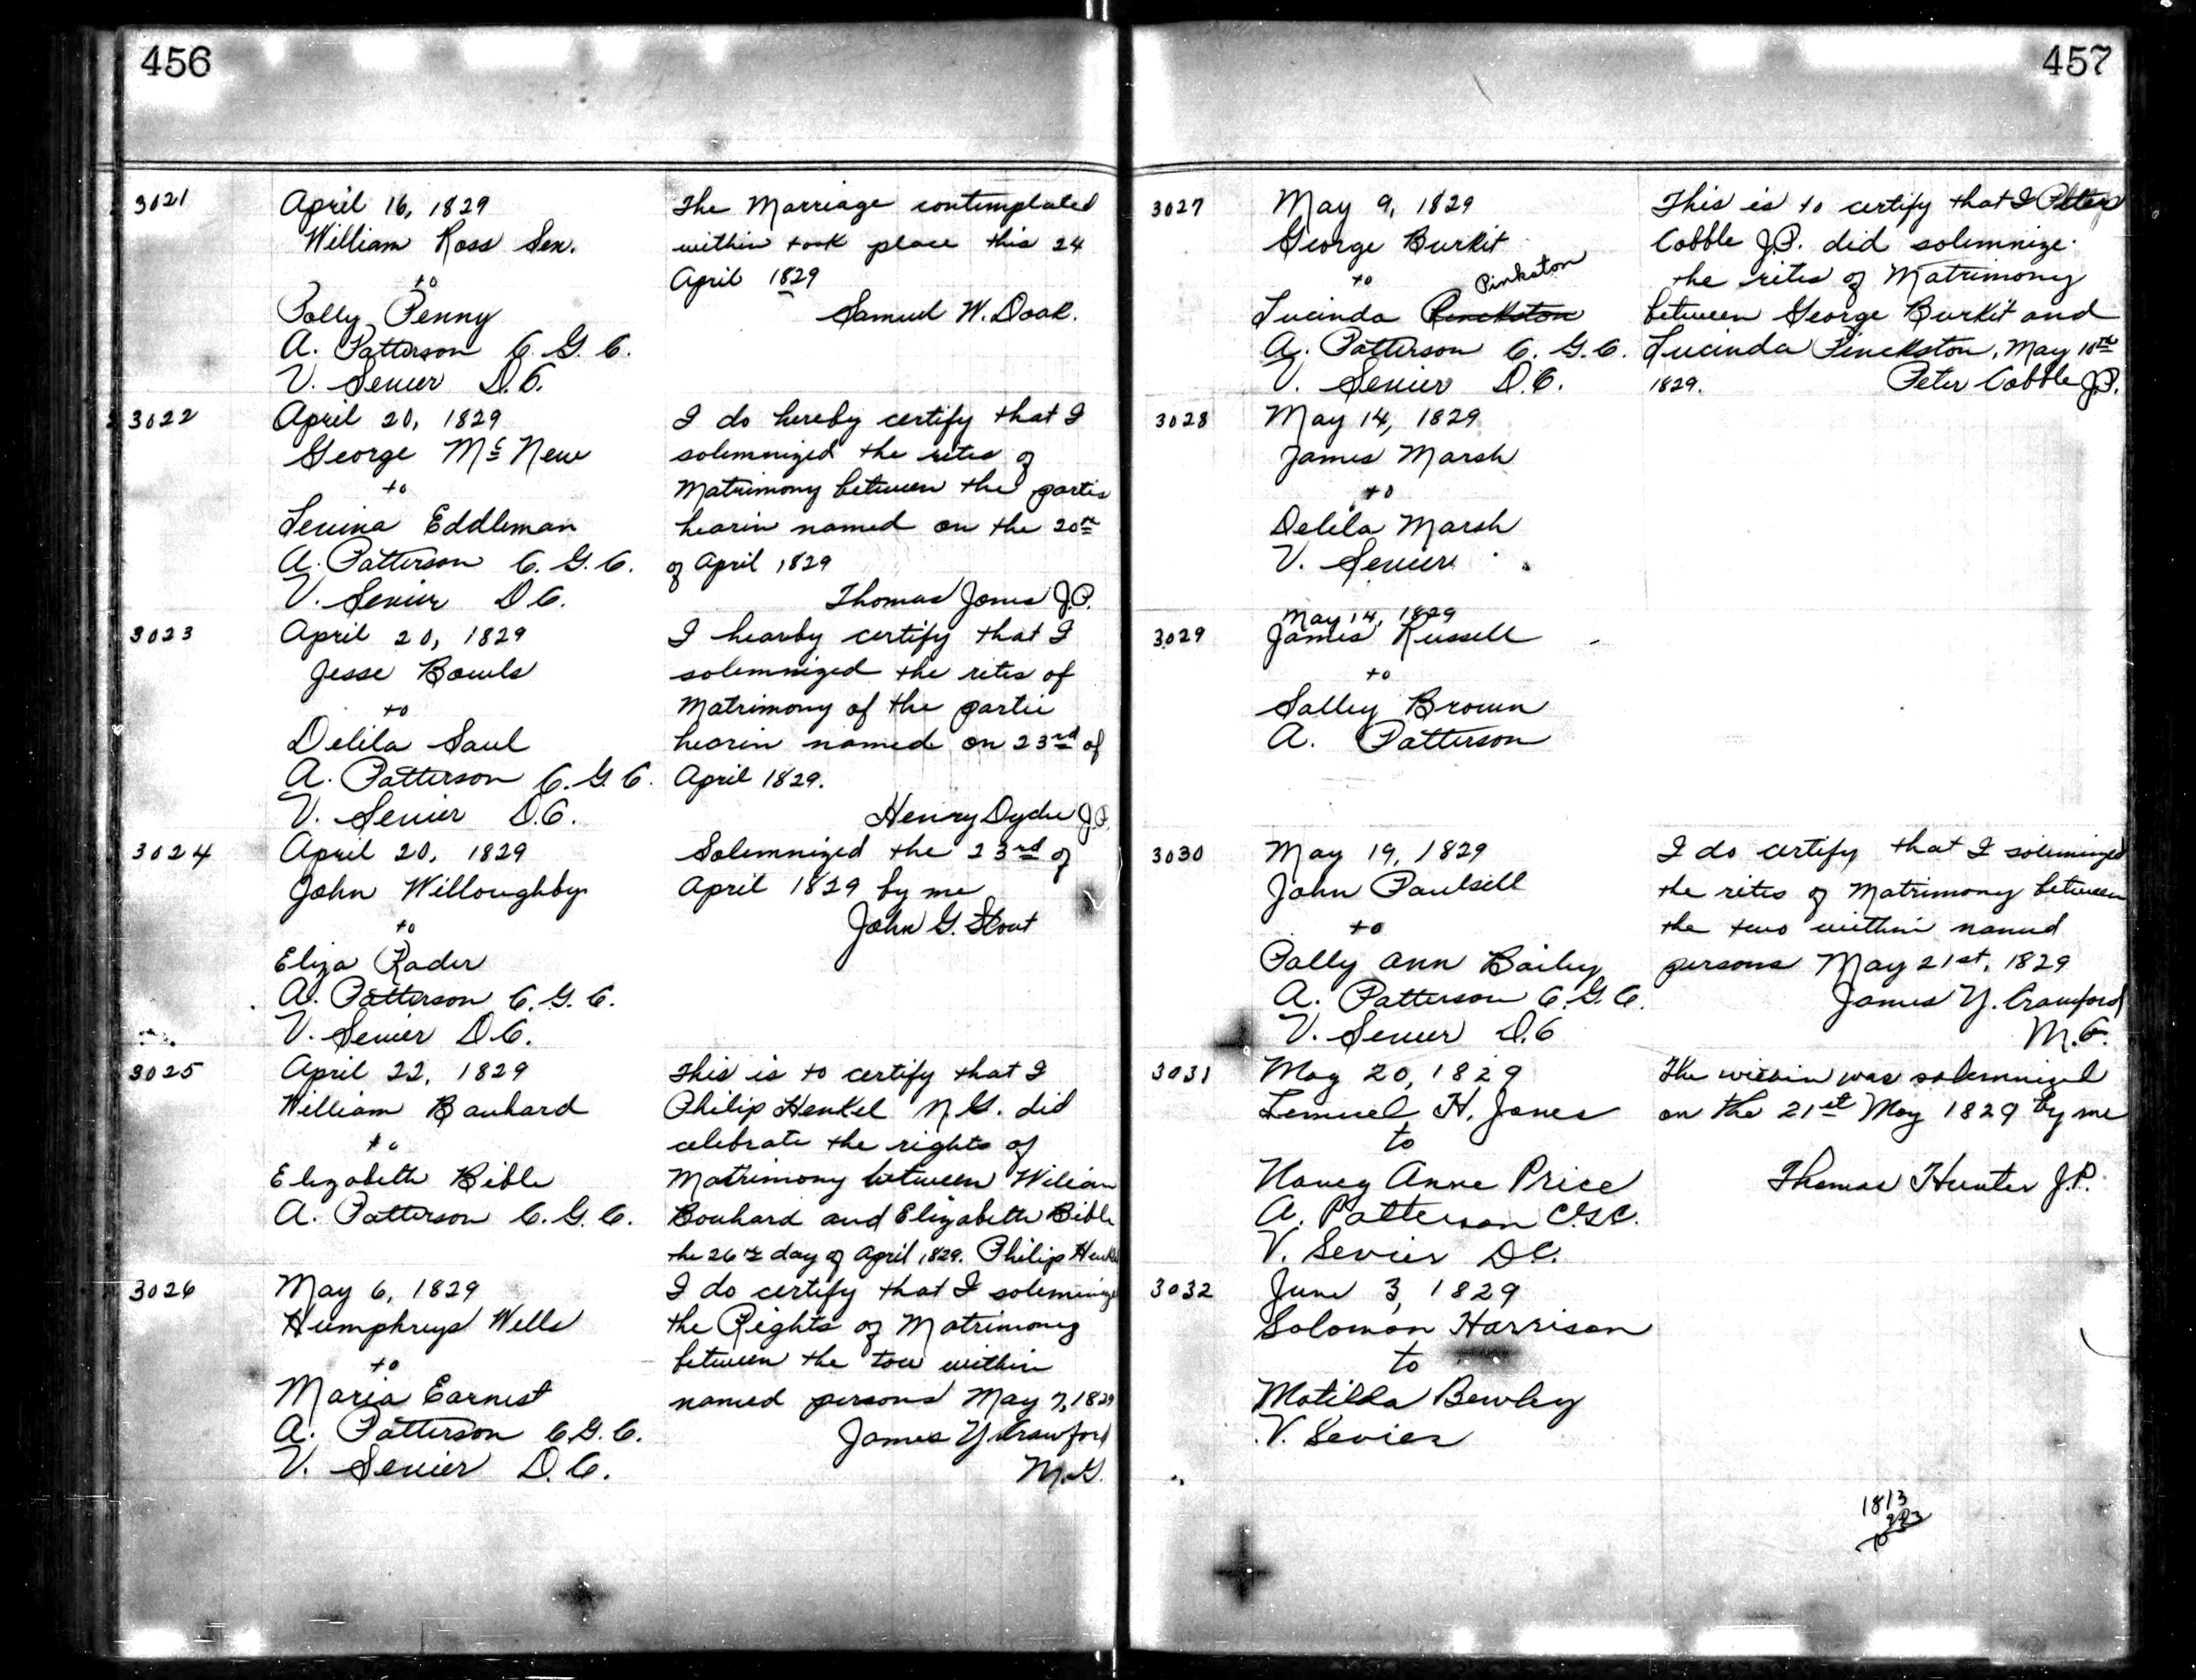 456
3021
April 16, 1829
William Ross Sen.
to
Polly Penny
A. Patterson C. G. C.
V. Sevier D.C.
The Marriage contemplated
within took place this 24
April 1829
Samuel W. Doak.
3022
April 20, 1829
George Mc New
to
Levina Eddleman
A. Patterson C. G. C.
V. Sevier D C.
I do hereby certify that I
solemnized the rites of
Matrimony between the partis
hearin named on the 20th
of April 1829
Thomas Jones J.P.
3023
April 20, 1829
Jesse Bowls
to
Delila Saul
A. Patterson C. G. C.
V. Sevier D.C.
I hearby certify that I
solemnized the rites of
Matrimony of the partie
hearin named on 23rd of
April 1829.
Henry Dyche J.P.
3024
April 20, 1829
John Willoughby
to
Eliza Rader
A. Patterson C. G. C.
V. Sevier D.C.
Solemnized the 23rd of
April 1829 by me
John G. Stout
3025
April 22, 1829
William Bauhard
to
Elizabeth Bible
A. Patterson C. G. C.
This is to certify that I
Philip Henkel M. G. did
celebrate the rights of
Matrimony between Wiliam
Bouhard and Elizabeth Bible
the 26th day of April 1829. Philip Henkel
3026
May 6, 1829
Humphreys Wells
to
Maria Earnest
A. Patterson C.G.C.
V. Sevier D.C.
I do certify that I soleminize
the Rights of Matrimony
between the tow within
named persons May 7, 1829
James Y Crawford
M.G.
457
3027
May 9, 1829
George Burkit
to Pinkston
Lucinda Penckston
A. Patterson C. G. C.
V. Sevier D.C.
This is to certify that I Peter
Cobble J.P. did solemnize
the rites of Matrimony
between George Burkit and
Lucinda Penckston, May 10th
1829. Peter Cobble J.P.
3028
May 14, 1829
James Marsh
to
Delila Marsh
V. Sevier
3029
May 14, 1829
James Russell
to
Salley Brown
A. Patterson
3030
May 19, 1829
John Paulsell
to
Polly Ann Bailey
A. Patterson C.G.C.
V. Sevier D.C
I do certify that I soleminzed
the rites of Matrimony between
the two within named
persons May 21st, 1829
James Y. Crawford
M.G.
3031
May 20, 1829
Lemuel H. Jones
to
Nancy Anne Price
A. Patterson CGC.
V. Sevier DC.
The within was solemnized
on the 21st May 1829 by me
Thomas Hunter J.P.
3032
June 3, 1829
Solomon Harrison
to
Matilda Bewley
V. Sevier
1813